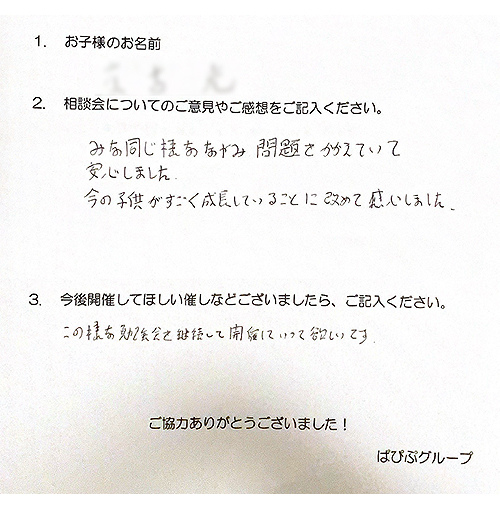 1. お子様のお名前
2. 相談会についてのご意見やご感想をご記入ください。
みな同じ様な なやみ 問題をかかえていて
安心しました.
今の子供がすごく成長していることに改めて感心しました.
3. 今後開催してほしい催しなどございましたら、ご記入ください。
この様な勉強会を継続して開催していって欲しいです.
ご協力ありがとうございました！
ぱぴぷグループ